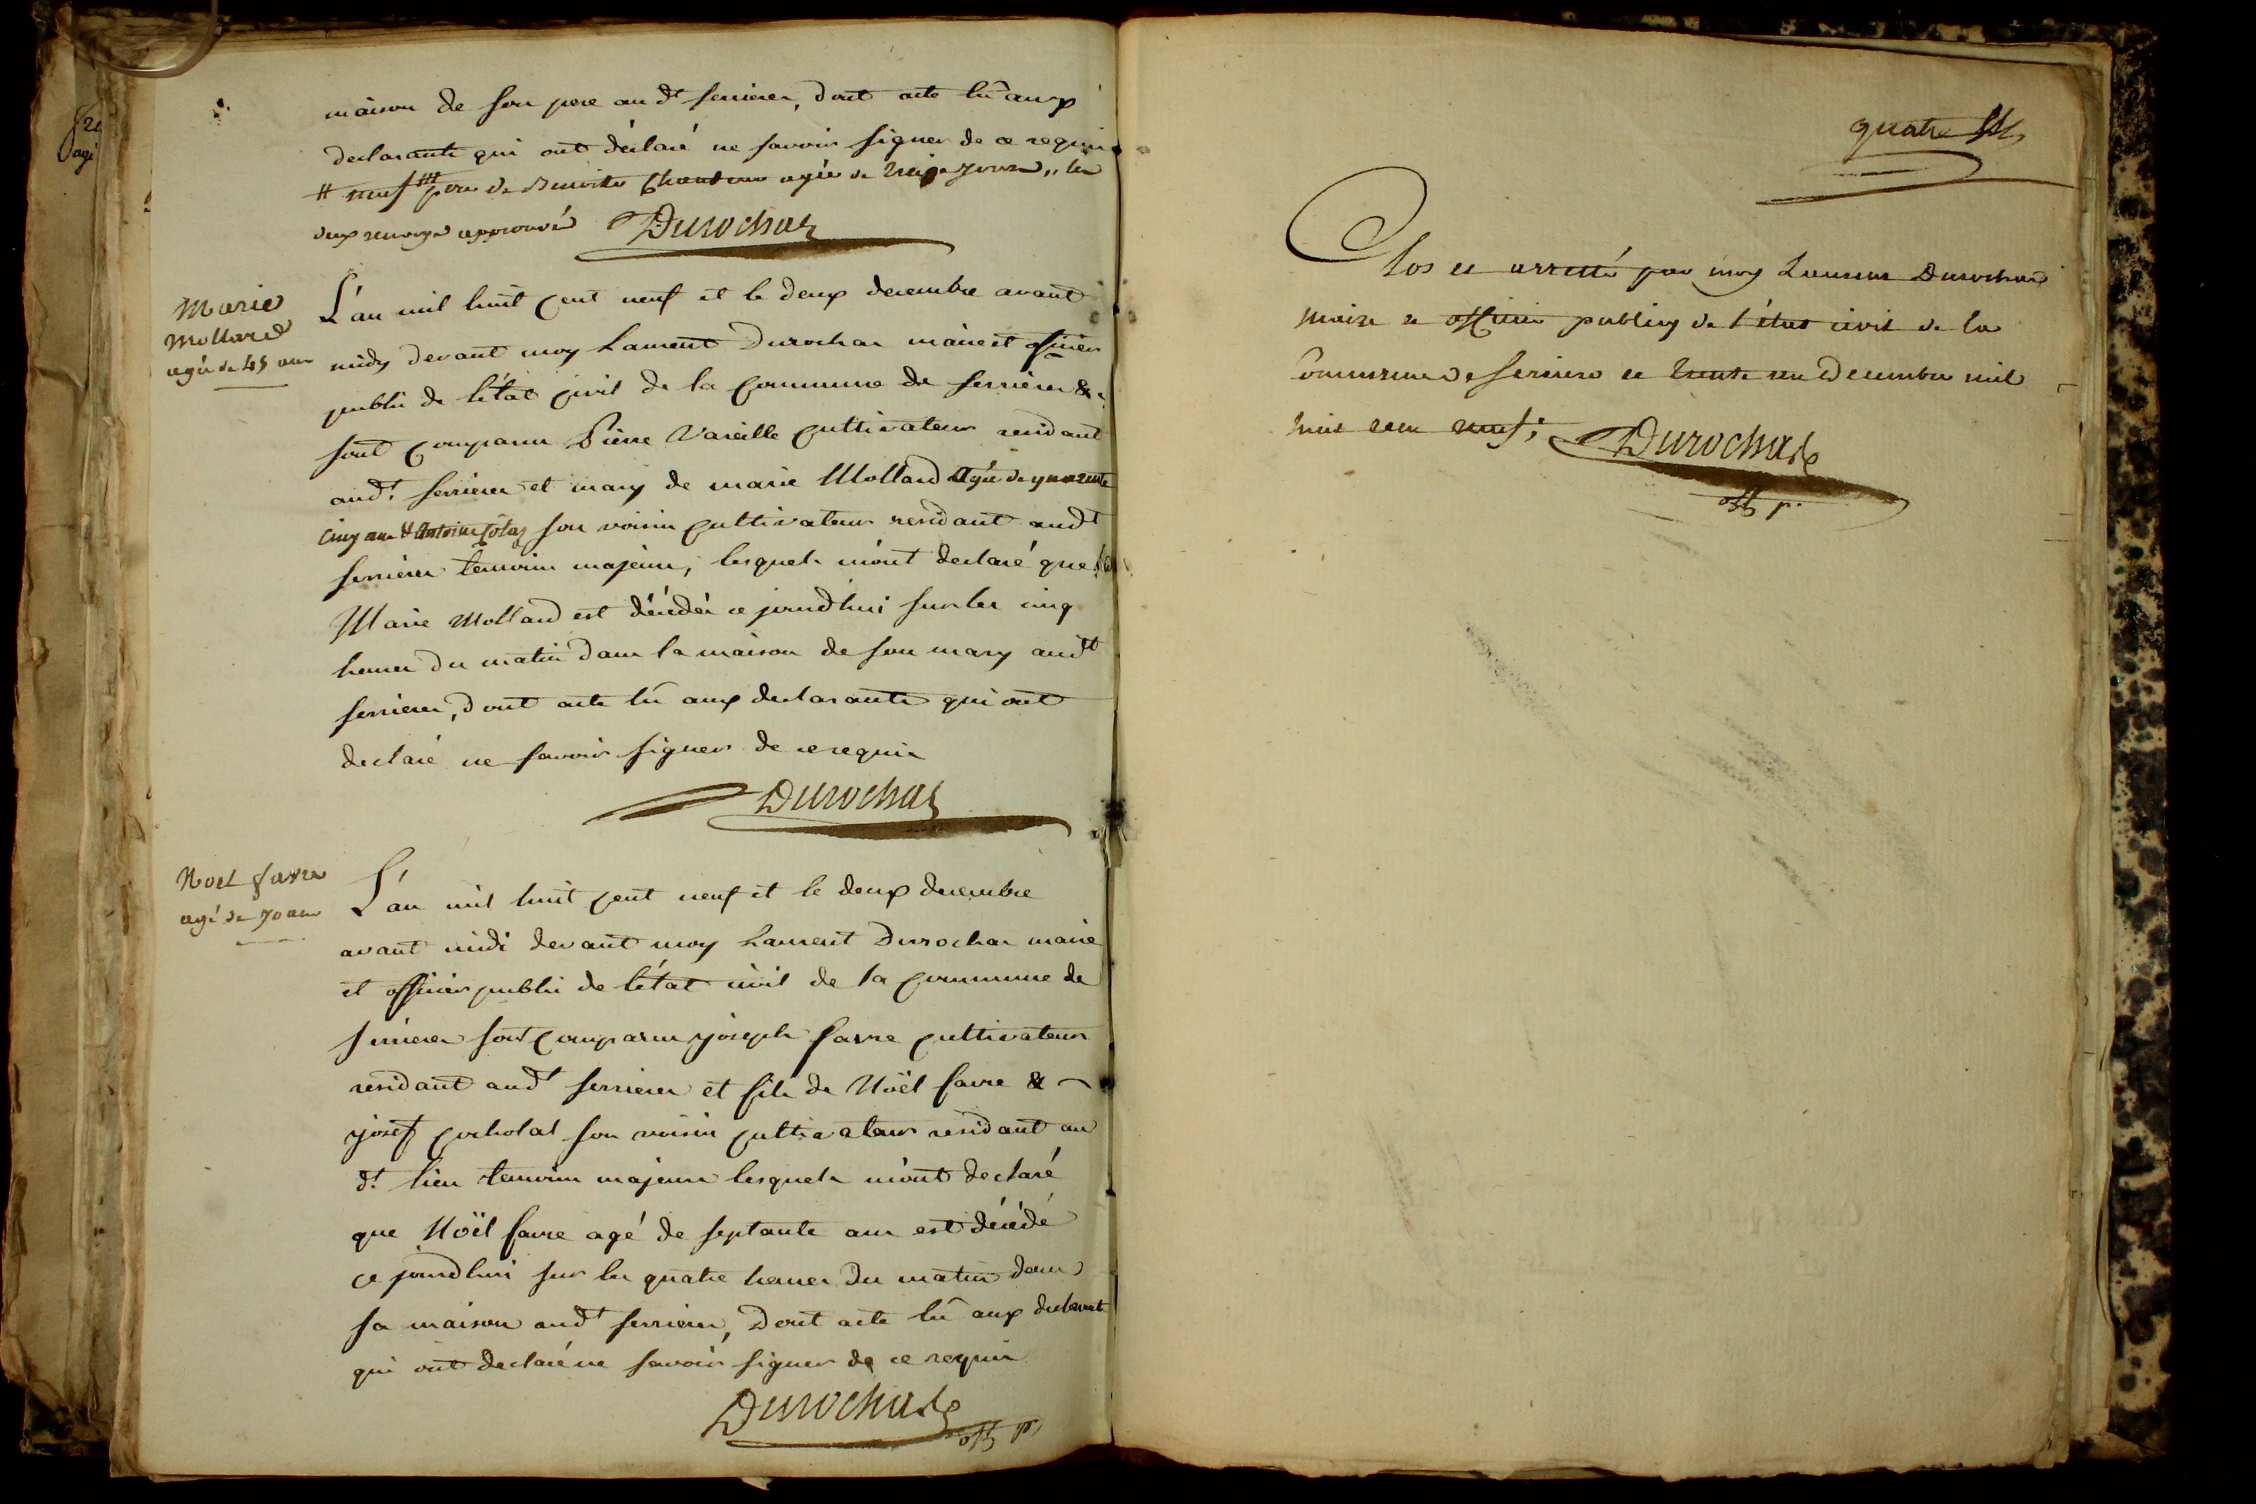 maison de son pere aud.t serriere, dont acte lû aux
declarants qui ont déclaré ne savoir signer de ce requis
# neuf ### pere de Benoite agée de jours, les
deux renvoys approuvés Durochat
Marie
Mollard
agée de 45 ans
L'an mil huit cent neuf et le deux decembre avant
midy devant moy Laurent Durochat maire et officier
public de l'état civil de la commune de serrieres &
sont comparu Pierre Vareille cultivateur residant
aud.t serrieres et mary de marie Mollard agée de quarente
cinq ans & Antoine Colas son voisin cultivateur residant aud.t
serrieres temoins majeurs, lesquels m'ont declaré que la
Marie Mollard est décédée ce jourd'hui sur les cinq
heures du matin dans la maison de son mary aud.t
serrieres, dont acte lû aux declarants qui ont
declaré ne savoir signer de ce requis
Durochat
Noel favre
agé de 70 ans
L'an mil huit cent neuf et le deux decembre
avant midi devant moy Laurent Durochat maire
et officier public de l'état civil de la commune de
serrieres sont comparus joseph favre cultivateur
residant aud.t serrieres et fils de Noël favre &
josef cocholat son voisin cultivateur residant au
d.t lieu temoins majeurs lesquels m'ont declaré
que Noël favre agé de septante ans est décédé
ce jourd'hui sur les quatre heures du matin dans
sa maison aud.t serrieres, dont acte lû aux declarants
qui ont declaré ne savoir signer de ce requis
Durochat
off. p.
quatre
Clos et arretté par moy Laurent Durochat
maire et officier publicq de l'état civil de la
Commune de serriere le trente un decembre mil
huit cent neuf. Durochat
off. p.